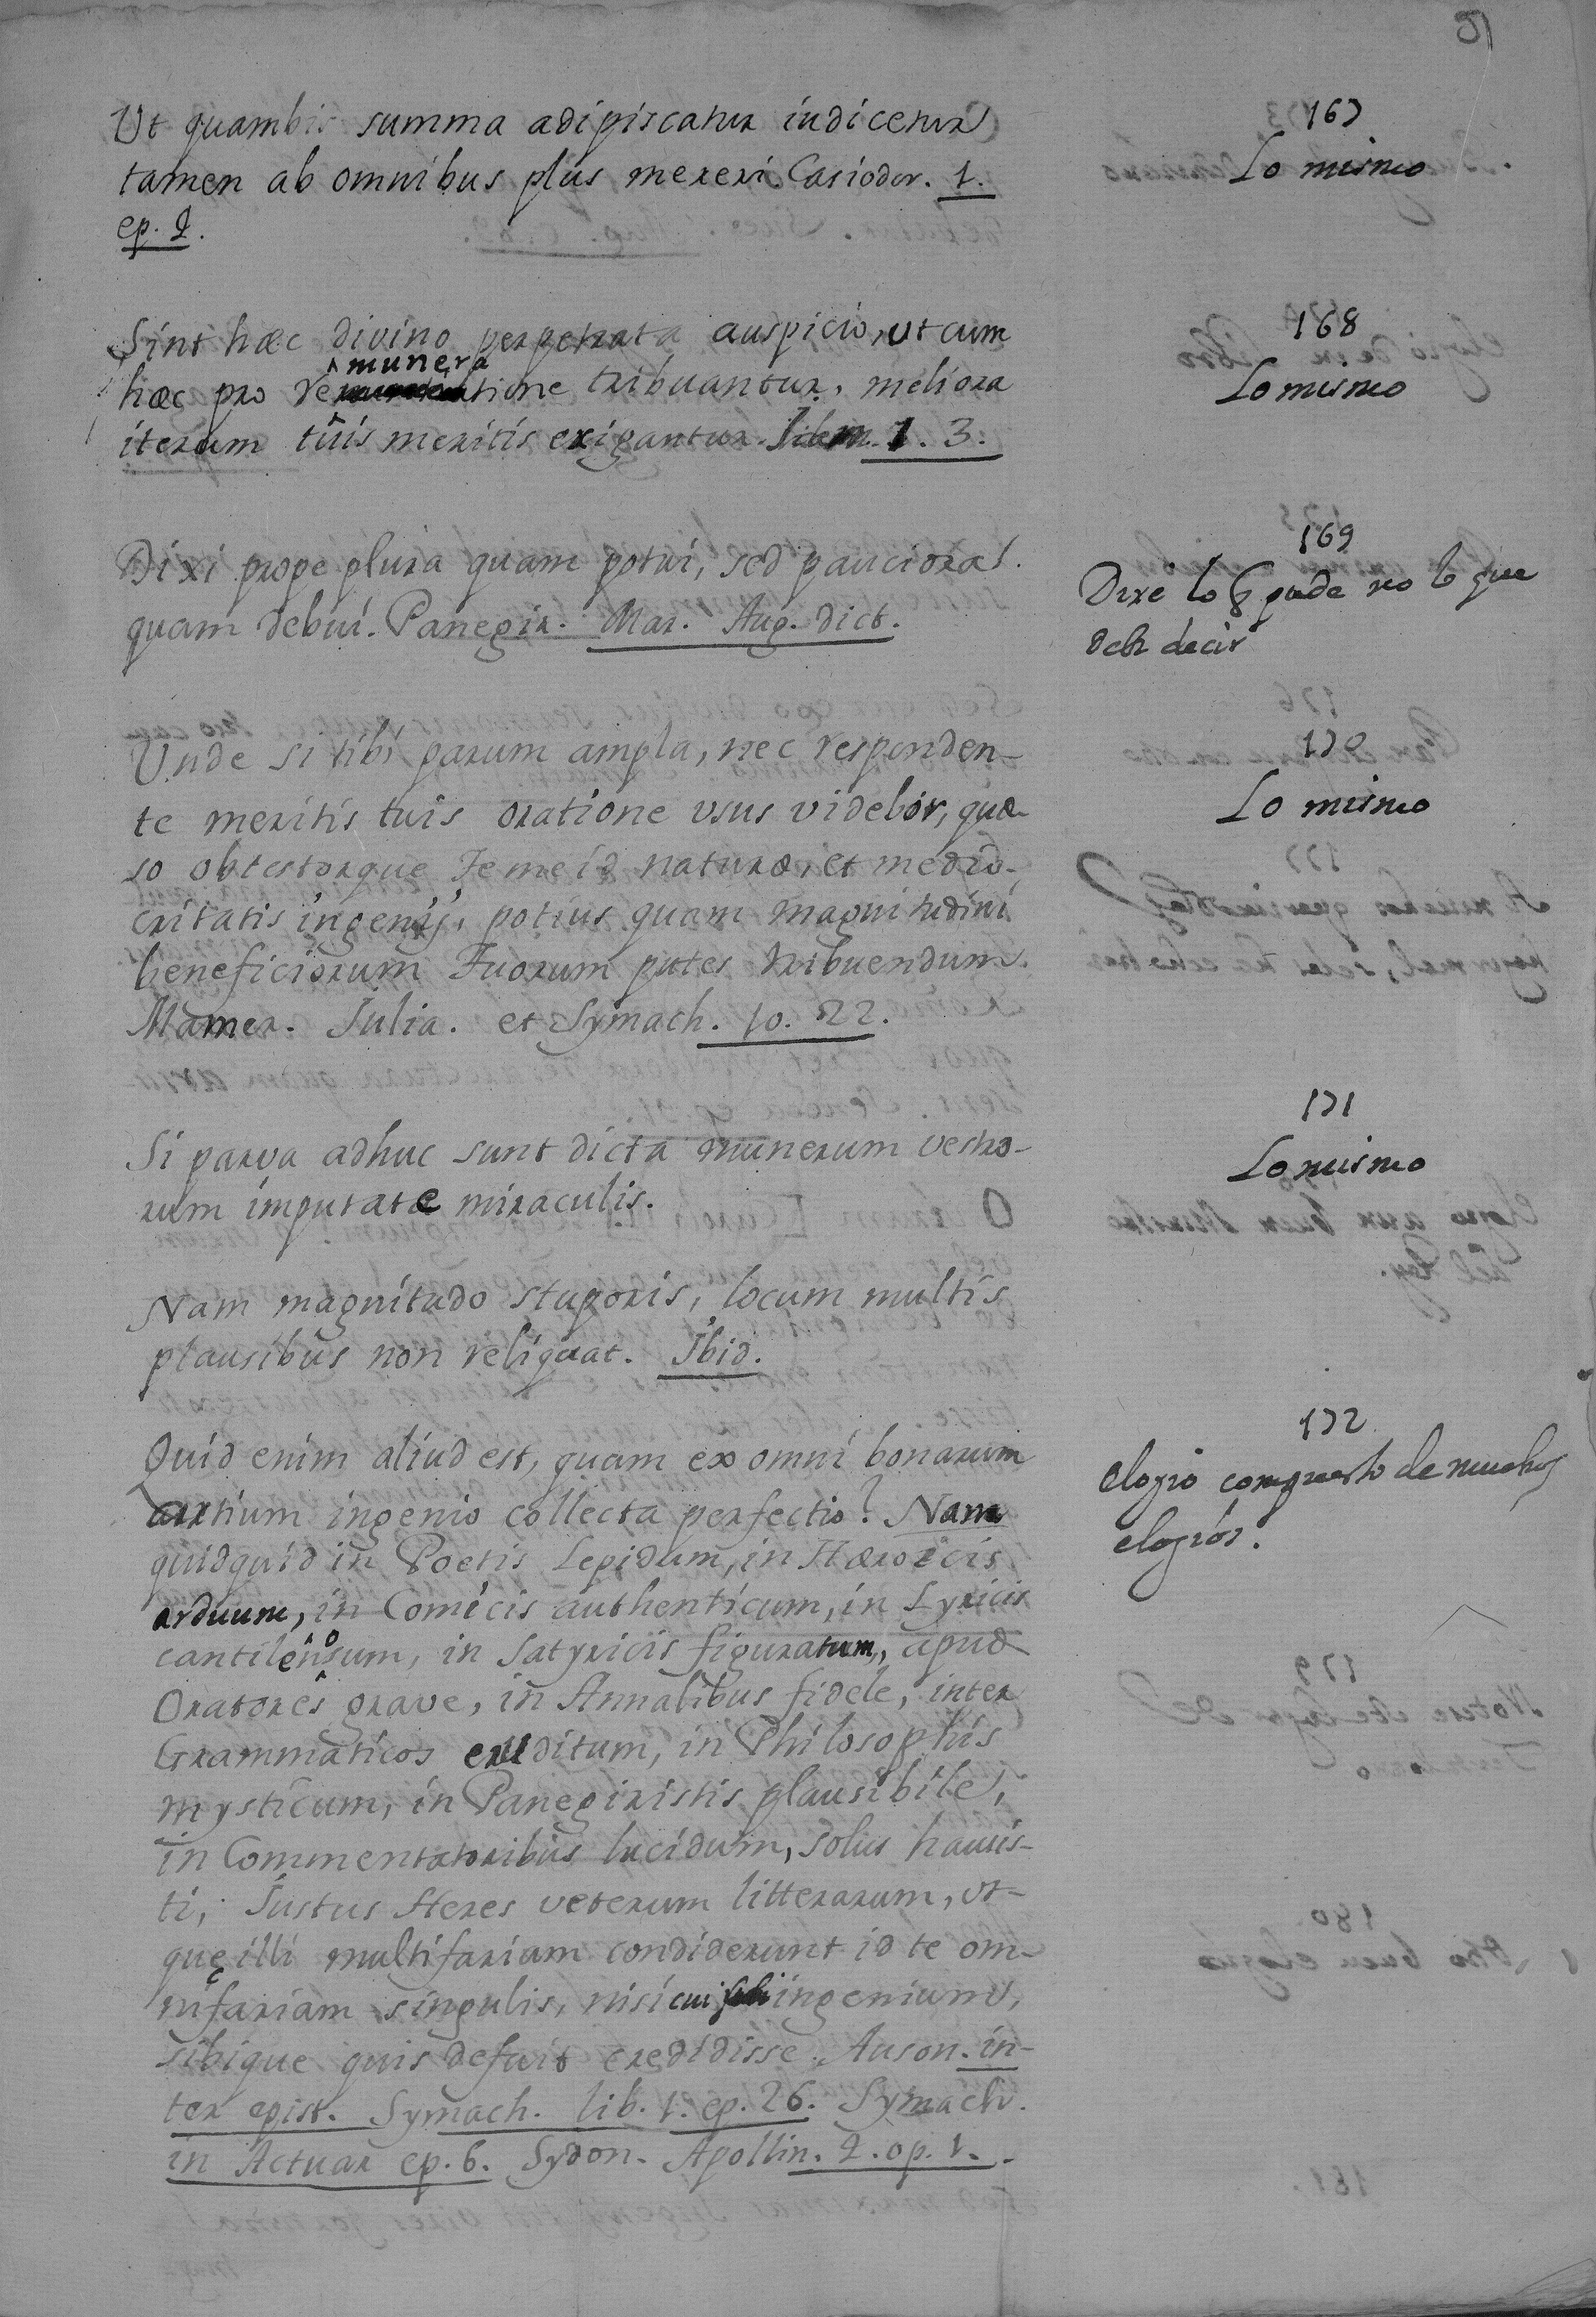 51
Ut quambis summa adipiscatur iudicetur
tamen ab omnibus plus mereri. Casiodor. 1.
ep. 2.
167
Lo mismo
Sint hæc divino perpetrata auspicio, ut cum
hæc pro remuneratione tribuantur, meliora
iterum tuis meritis exigantur. Idem. 1. 3.
168
Lo mismo
Dixi prope plura quam potui, sed pauciora
quam debui. Panegir. Mar. Aug. dict.
169
Dixe lo q pude no lo que
debi decir
Unde si tibi parum ampla, nec responden-
te meritis tuis oratione usus videbor, quæ-
so obtestorque Te me id naturæ, et medio-
critatis ingenij, potius quam magnitudini
beneficiorum Tuorum putes tribuendum.
Mamer. Julia. et Symach. 10. 22.
170
Lo mismo
Si parva adhuc sunt dicta munerum vestro-
rum imputate miraculis.
171
Lo mismo
Nam magnitudo stuporis, locum multis
plausibus non reliquat. Ibid.
Quid enim aliud est, quam ex omni bonarum
artium ingenio collecta perfectio? Nam
quidquid in Poetis Lepidum, in Hæroicis
arduum, in Comicis authenticum, in Lyricis
cantilenosum, in Satyricis figuratum, apud
Oratores grave, in Annalibus fidele, inter
Grammaticos eruditum, in Philosophis
mysticum, in Panegiristis plausibile,
in Commentatoribus lucidum, solus hauis-
ti, Justus Heres veterum litterarum, ut
quę illi multifariam condiderunt id te om-
nifariam singulis, nisi cui ingenium,
sibique quis defuit credidisse. Auson. in-
ter epist. Symach. lib. 1. ep. 26. Symach.
in Actuar ep. 6. Sydon. Apollin. 2. op. 1.
172
elogio compuesto de muchos
elogios.